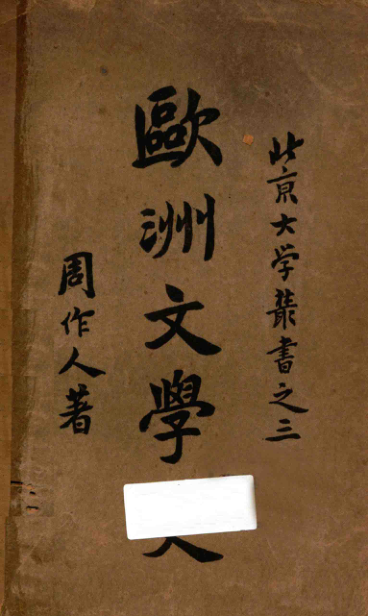 北京大学叢書之三
歐洲文學
周作人著